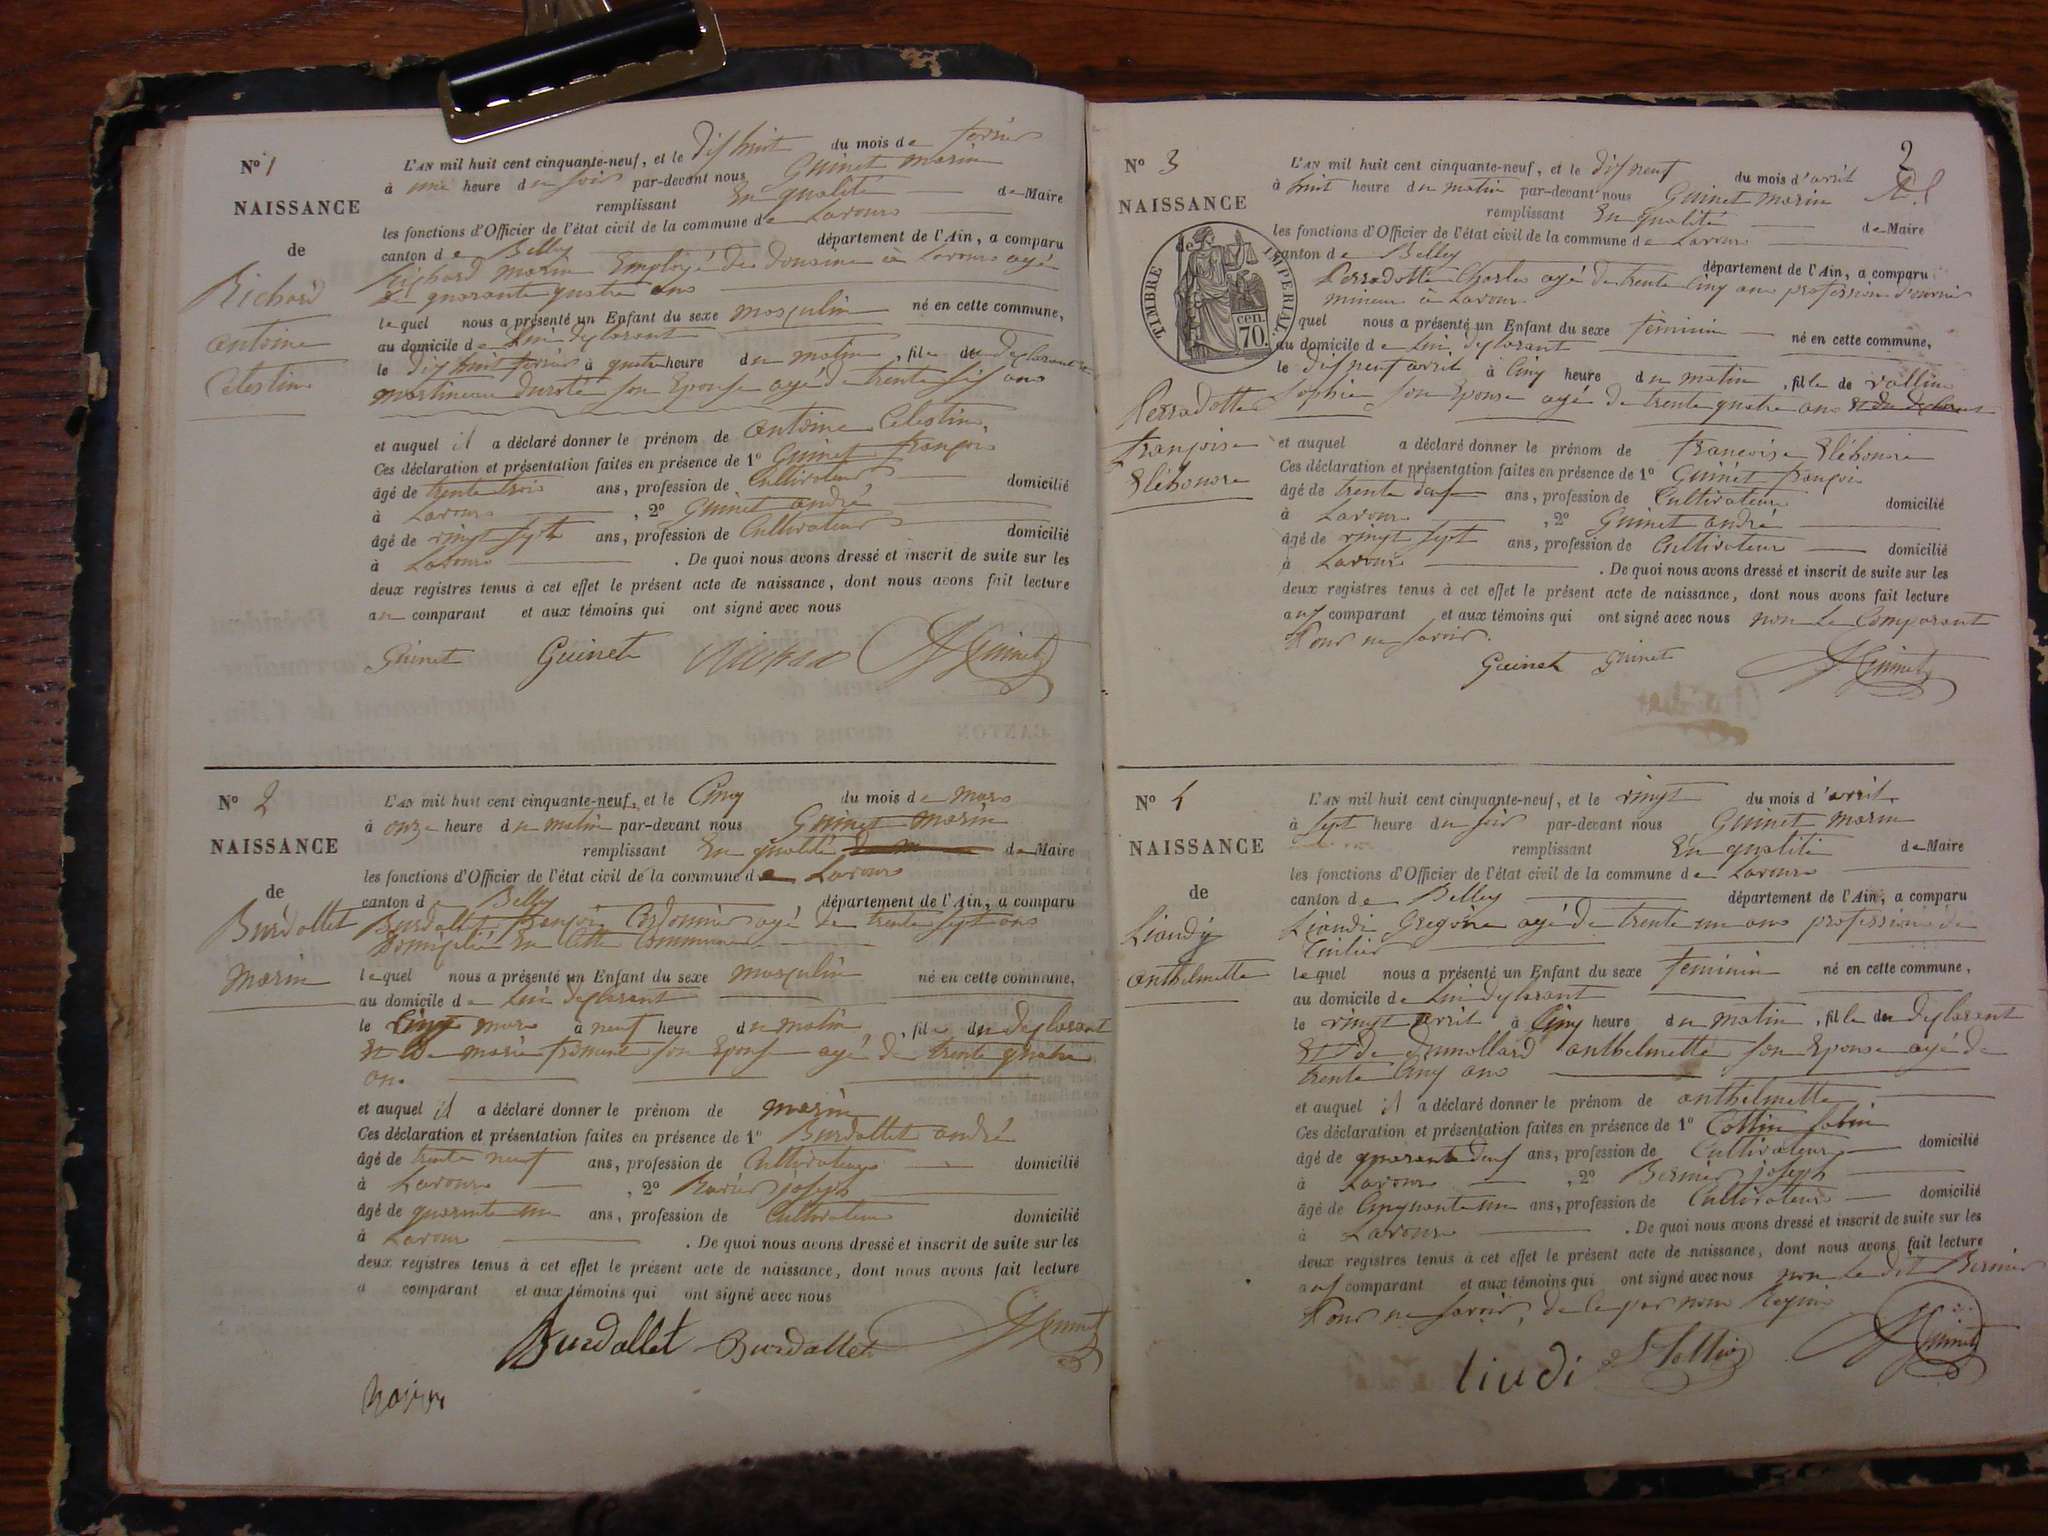 N° 1
NAISSANCE
de
Richard
antoine
Celestin
L'AN mil huit cent cinquante-neuf, et le dishuit du mois de fevrier
à une heure du soir par-devant nous Guinet marin
remplissant En qualité de Maire
les fonctions d'Officier de l'état civil de la commune de Lavours
canton de Belley département de l'Ain, a comparu
Richard marin Employé des douane à Lavours agé
de quarante quatre ans
lequel nous a présenté un Enfant du sexe masculin né en cette commune,
au domicile de lui déclarant
le dishuit fevrier à quatre heure du matin, fils du declarant et
martineau son Epouse agé de trente six ans
et auquel il a déclaré donner le prénom de antoine Celestin
Ces déclaration et présentation faites en présence de 1° Guinet françois
âgé de trente trois ans, profession de Cultivateur domicilié
à Lavours, 2° Guinet andré
âgé de vingt sept ans, profession de Cultivateur domicilié
à Lavours. De quoi nous avons dressé et inscrit de suite sur les
deux registres tenus à cet effet le présent acte de naissance, dont nous avons fait lecture
au comparant et aux témoins qui ont signé avec nous
Guinet Guinet Richard Guinet
N° 2
NAISSANCE
de
Burdallet
marin
L'AN mil huit cent cinquante-neuf, et le Cinq du mois de mars
à onze heure du matin par-devant nous Guinet marin
remplissant En qualité de Maire
les fonctions d'Officier de l'état civil de la commune de Lavours
canton de Belley, département de l'Ain, a comparu
Burdallet françois Cordonnier agé de trente sept ans
Domicilié en Cette Commune
lequel nous a présenté un Enfant du sexe masculin né en cette commune,
au domicile de lui declarant
le Cinq mars à neuf heure du matin, fils du declarant
et de marie son Epouse agé de trente quatre
ans
et auquel il a déclaré donner le prénom de marin
Ces déclaration et présentation faites en présence de 1° Burdallet andré
âgé de trente neuf ans, profession de Cultivateur domicilié
à Lavours, 2° joseph
âgé de quarante un ans, profession de Cultivateur domicilié
à Lavours. De quoi nous avons dressé et inscrit de suite sur les
deux registres tenus à cet effet le présent acte de naissance, dont nous avons fait lecture
a comparant et aux témoins qui ont signé avec nous
Burdallet Burdallet Guinet
2
N° 3
NAISSANCE
de
TIMBRE IMPERIAL
70. cen.
Perradotte
françoise
Eléhonore
L'AN mil huit cent cinquante-neuf, et le disneuf du mois d'avril
à huit heure du matin par-devant nous Guinet marin
remplissant En qualité de Maire
les fonctions d'Officier de l'état civil de la commune de Lavours
canton de Belley département de l'Ain, a comparu
Perradotte Charles agé de trente Cinq ans profession d'ouvrier
mineur à Lavours
quel nous a présenté un Enfant du sexe féminin né en cette commune,
au domicile de lui declarant
le disneuf avril à Cinq heure du matin, fille de vollin
Sophie son Epouse agé de trente quatre ans et du declarant
et auquel a déclaré donner le prénom de francoise Eléhonore
Ces déclaration et présentation faites en présence de 1° Guinet françois
âgé de trente ans, profession de Cultivateur domicilié
à Lavours, 2° Guinet andré
âgé de vingt sept ans, profession de Cultivateur domicilié
à Lavours. De quoi nous avons dressé et inscrit de suite sur les
deux registres tenus à cet effet le présent acte de naissance, dont nous avons fait lecture
aux comparant et aux témoins qui ont signé avec nous non Le Comparant
Pour ne savoir.
Guinet Guinet Guinet
N° 4
NAISSANCE
de
Liaudy
anthelmette
L'AN mil huit cent cinquante-neuf, et le vingt du mois d'avril
à Sept heure du soir par-devant nous Guinet marin
remplissant En qualité de Maire
les fonctions d'Officier de l'état civil de la commune de Lavours
canton de Belley département de l'Ain, a comparu
Liaudi Gregoire agé de trente un ans profession de
Tuilier
lequel nous a présenté un Enfant du sexe feminin né en cette commune,
au domicile de lui declarant
le vingt avril à Cinq heure du matin, fille du declarant
Et de dumollard anthelmette son Epouse agé de
trente Cinq ans
et auquel il a déclaré donner le prénom de anthelmette
Ces déclaration et présentation faites en présence de 1° Collin Sabin
âgé de quarante deux ans, profession de Cultivateur domicilié
à Lavours, 2° Bernier joseph
âgé de Cinquante un ans, profession de Cultivateur domicilié
à Lavours. De quoi nous avons dressé et inscrit de suite sur les
deux registres tenus à cet effet le présent acte de naissance, dont nous avons fait lecture
aux comparant et aux témoins qui ont signé avec nous non Le dit Bernier
Pour ne savoir, de ce par nous Requis
liudi Collin Guinet